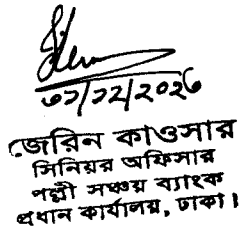 ৩১/১২/২০২৩
জেরিন কাওসার
সিনিয়র অফিসার
পল্লী সঞ্চয় ব্যাংক
প্রধান কার্যালয়, ঢাকা।